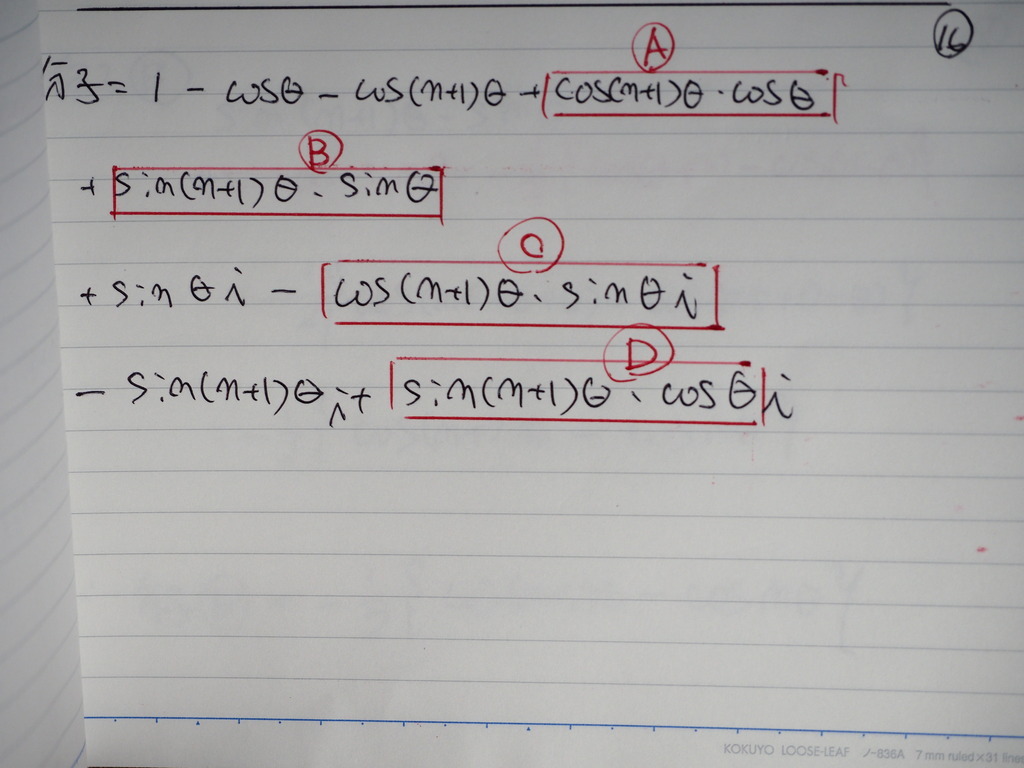 16
A
分子 = 1 - cosθ - cos(n+1)θ + cos(n+1)θ・cosθ
B
+ sin(n+1)θ・sinθ
C
+ sinθi - cos(n+1)θ・sinθi
D
- sin(n+1)θi + sin(n+1)θ・cosθi
KOKUYO LOOSE-LEAF ノ-836A 7mm ruled×31 lines